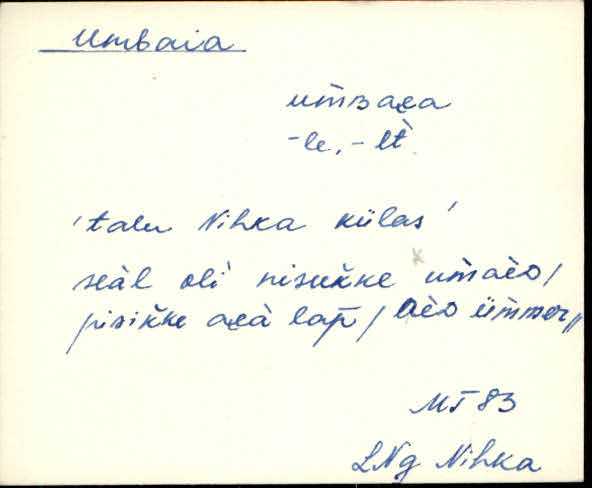 Umbaia
um̄ʙaea
-le, -lt̀
'talu Nihka külas'
seàl olì nisukke um̄aèo/
pisikke aeà lap̄/ aèo üm̄ʙer,,
MT 83
LNg Nihka